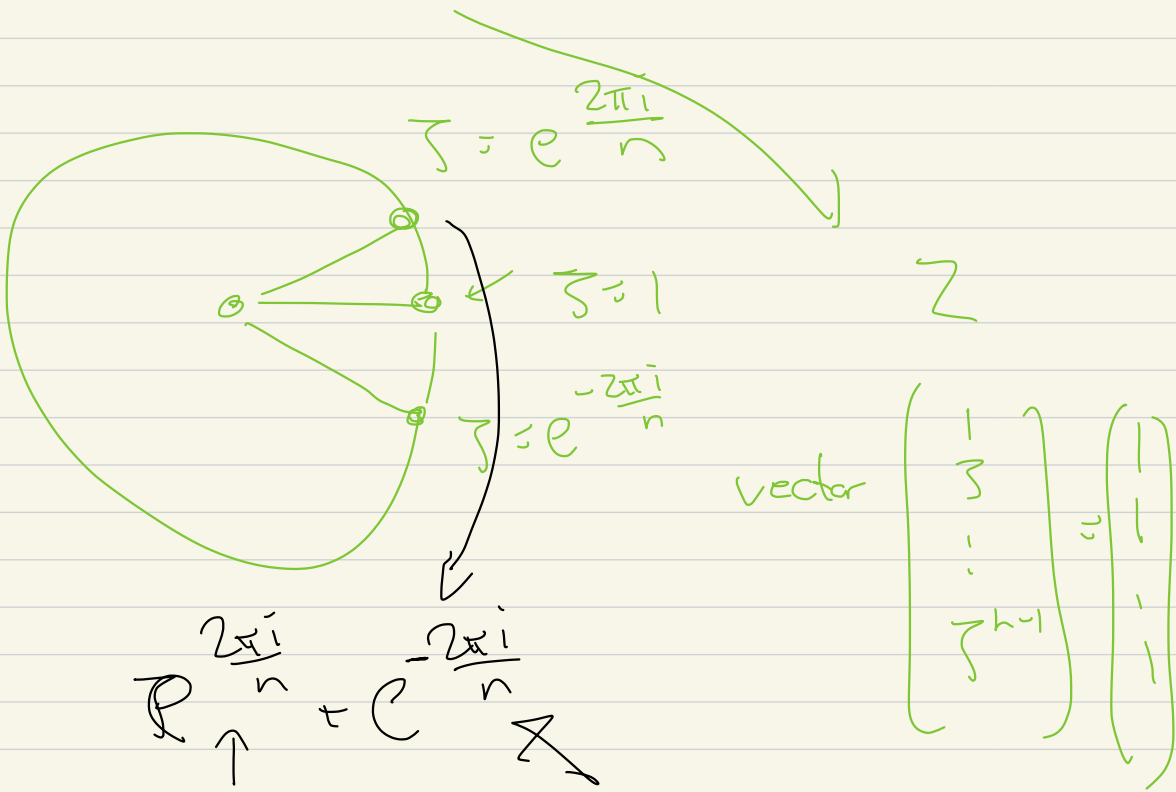 ζ = e^{2πi/n}
ζ = 1
2
ζ = e^{-2πi/n}
vector (1 ζ ⋮ ζ^{n-1}) = (1 1 ⋮ 1)
e^{2πi/n} + e^{-2πi/n}